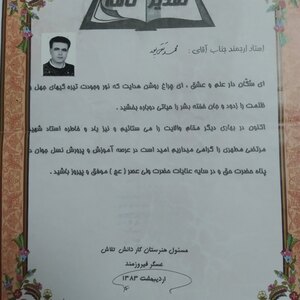 تقدیر نامه
استاد ارجمند جناب آقای :
ای سکان دار علم و عشق ، ای چراغ روشن هدایت که نور وجودت تیره گیهای جهل و
ظلمت را زدود و جان خفته بشر را حیاتی دوباره بخشید .
اکنون در بهاری دیگر مقام والایت را می ستائیم و نیز یاد و خاطره استاد شهید
مرتضی مطهری را گرامی میداریم امید است در عرصه آموزش و پرورش نسل جوان در
پناه حضرت حق و در سایه عنایات حضرت ولی عصر ( عج ) موفق و پیروز باشید .
مسئول هنرستان کار دانش تلاش
عسگر فیروزمند
اردیبهشت ۱۳۸۳